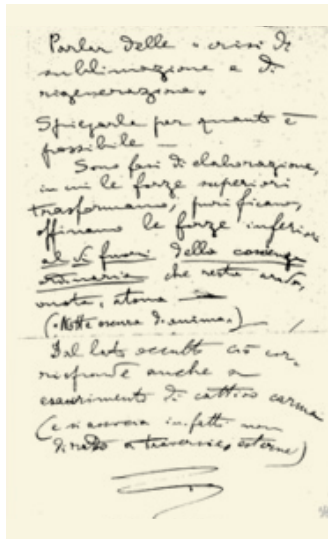 Parlar delle "crisi di
sublimazione e di
rigenerazione"
Spiegarla per quanto è
possibile —
Sono fasi di elaborazione,
in cui le forze superiori
trasformano, purificano,
affinano le forze inferiori
al di fuori della coscienza
ordinaria che resta arida,
vuota, atona —
("Notte oscura di anima")
Dal lato occulto ciò cor-
risponde anche a
esaurimento di cattivo carma
(e si associa infatti non
di rado a traversie esterne)